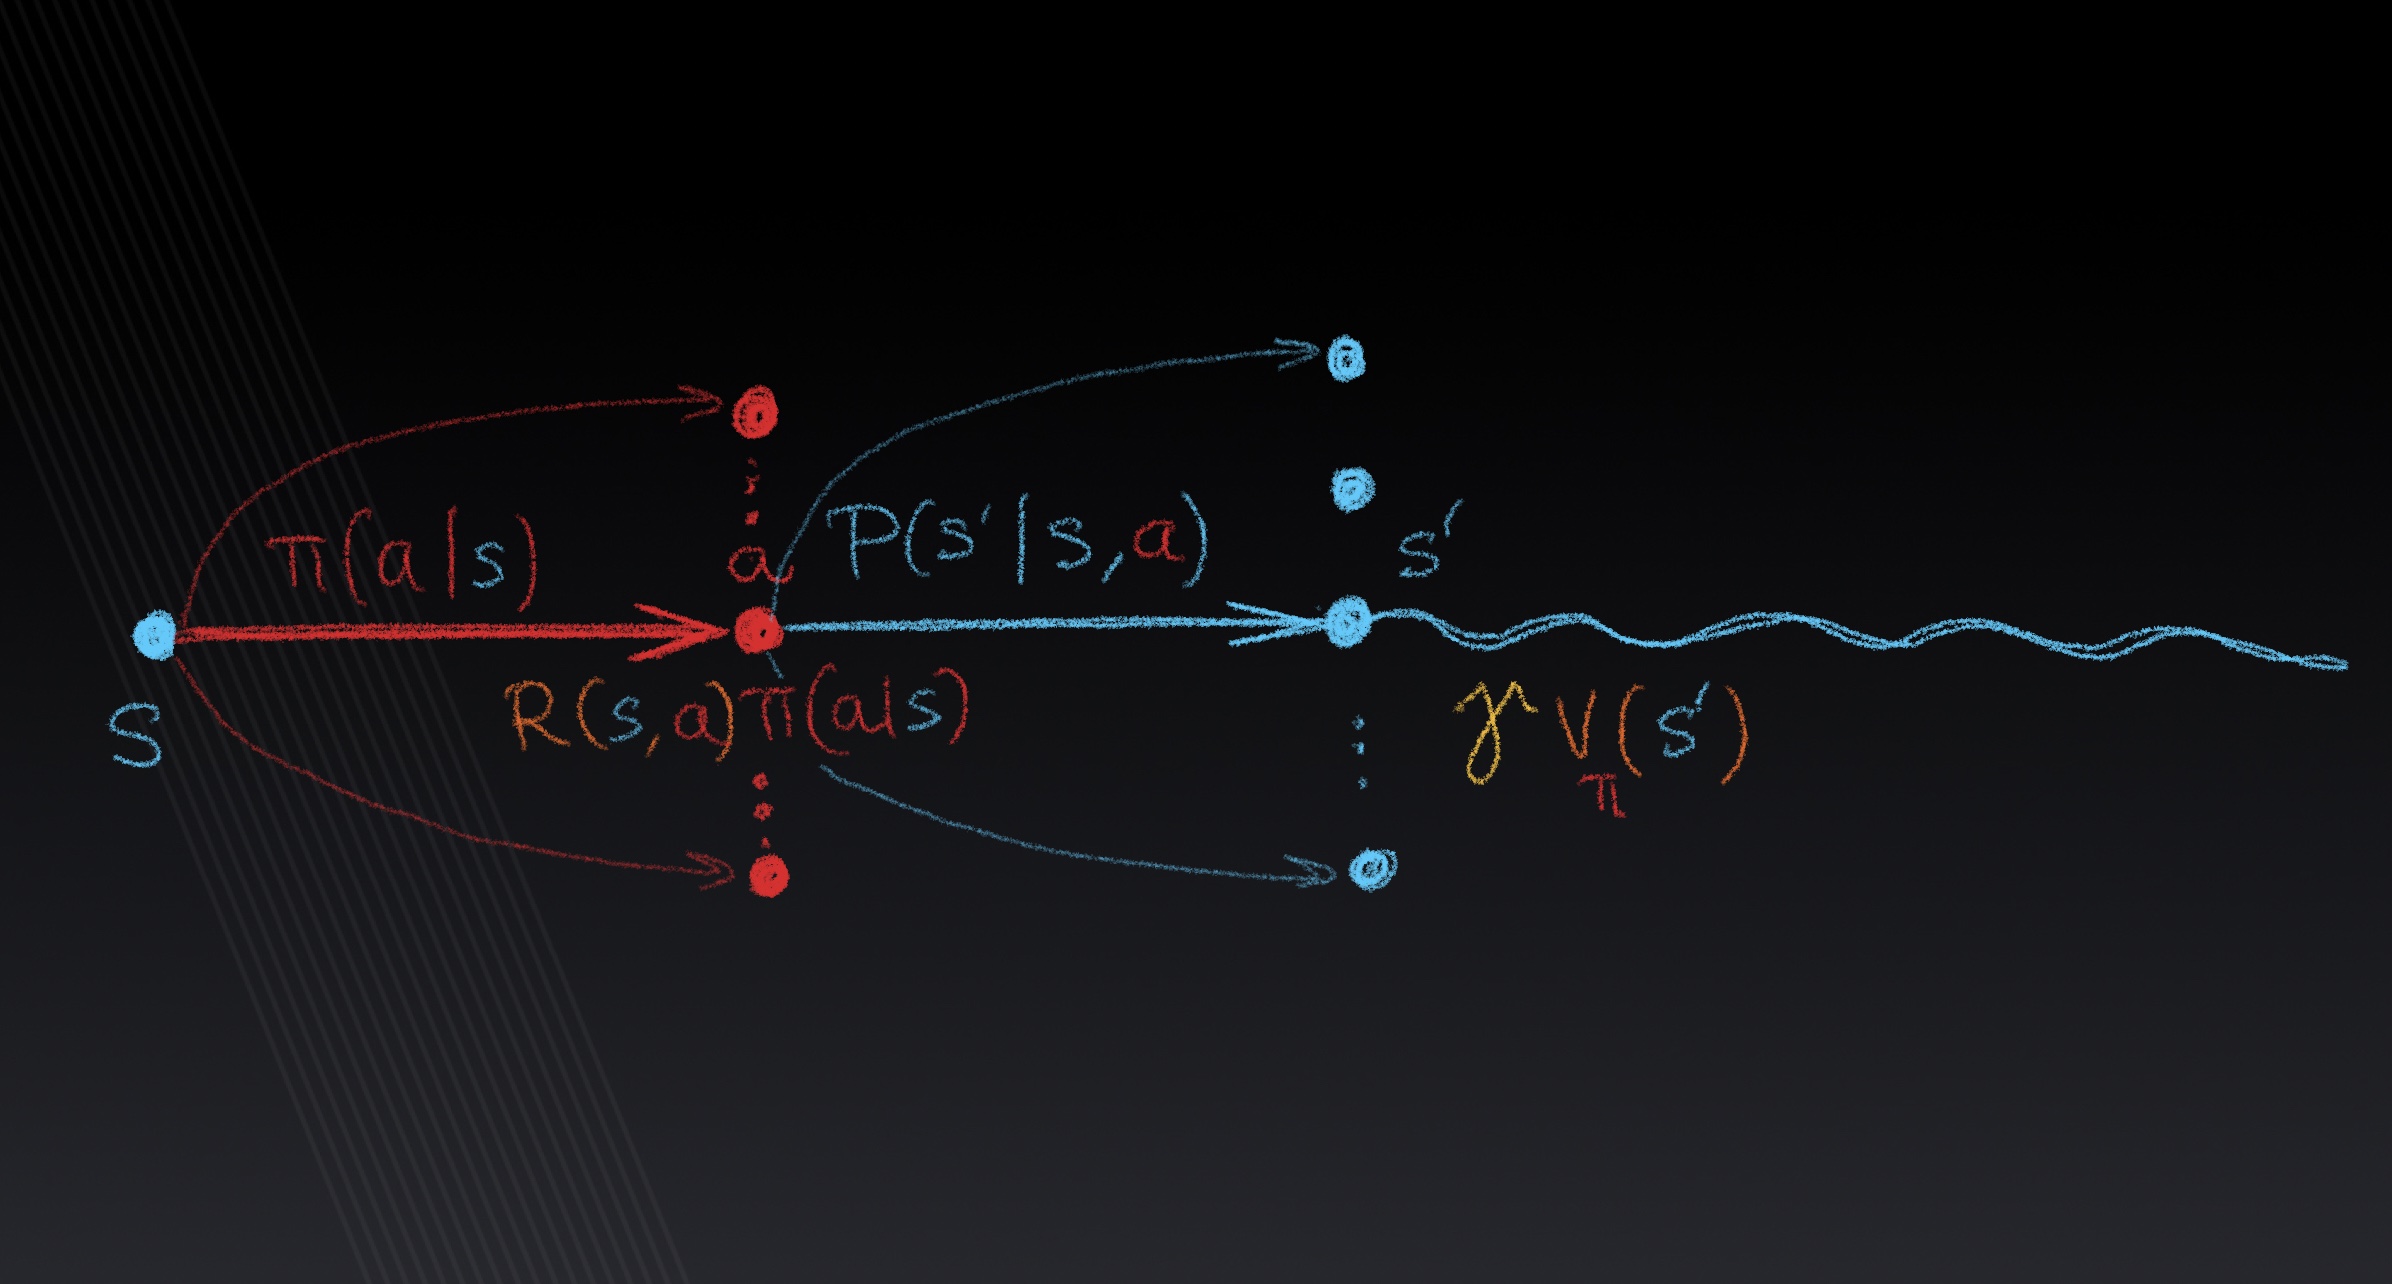 π(a|s)
a
P(s'|s,a)
s'
s
R(s,a)π(a|s)
γ V_π(s')